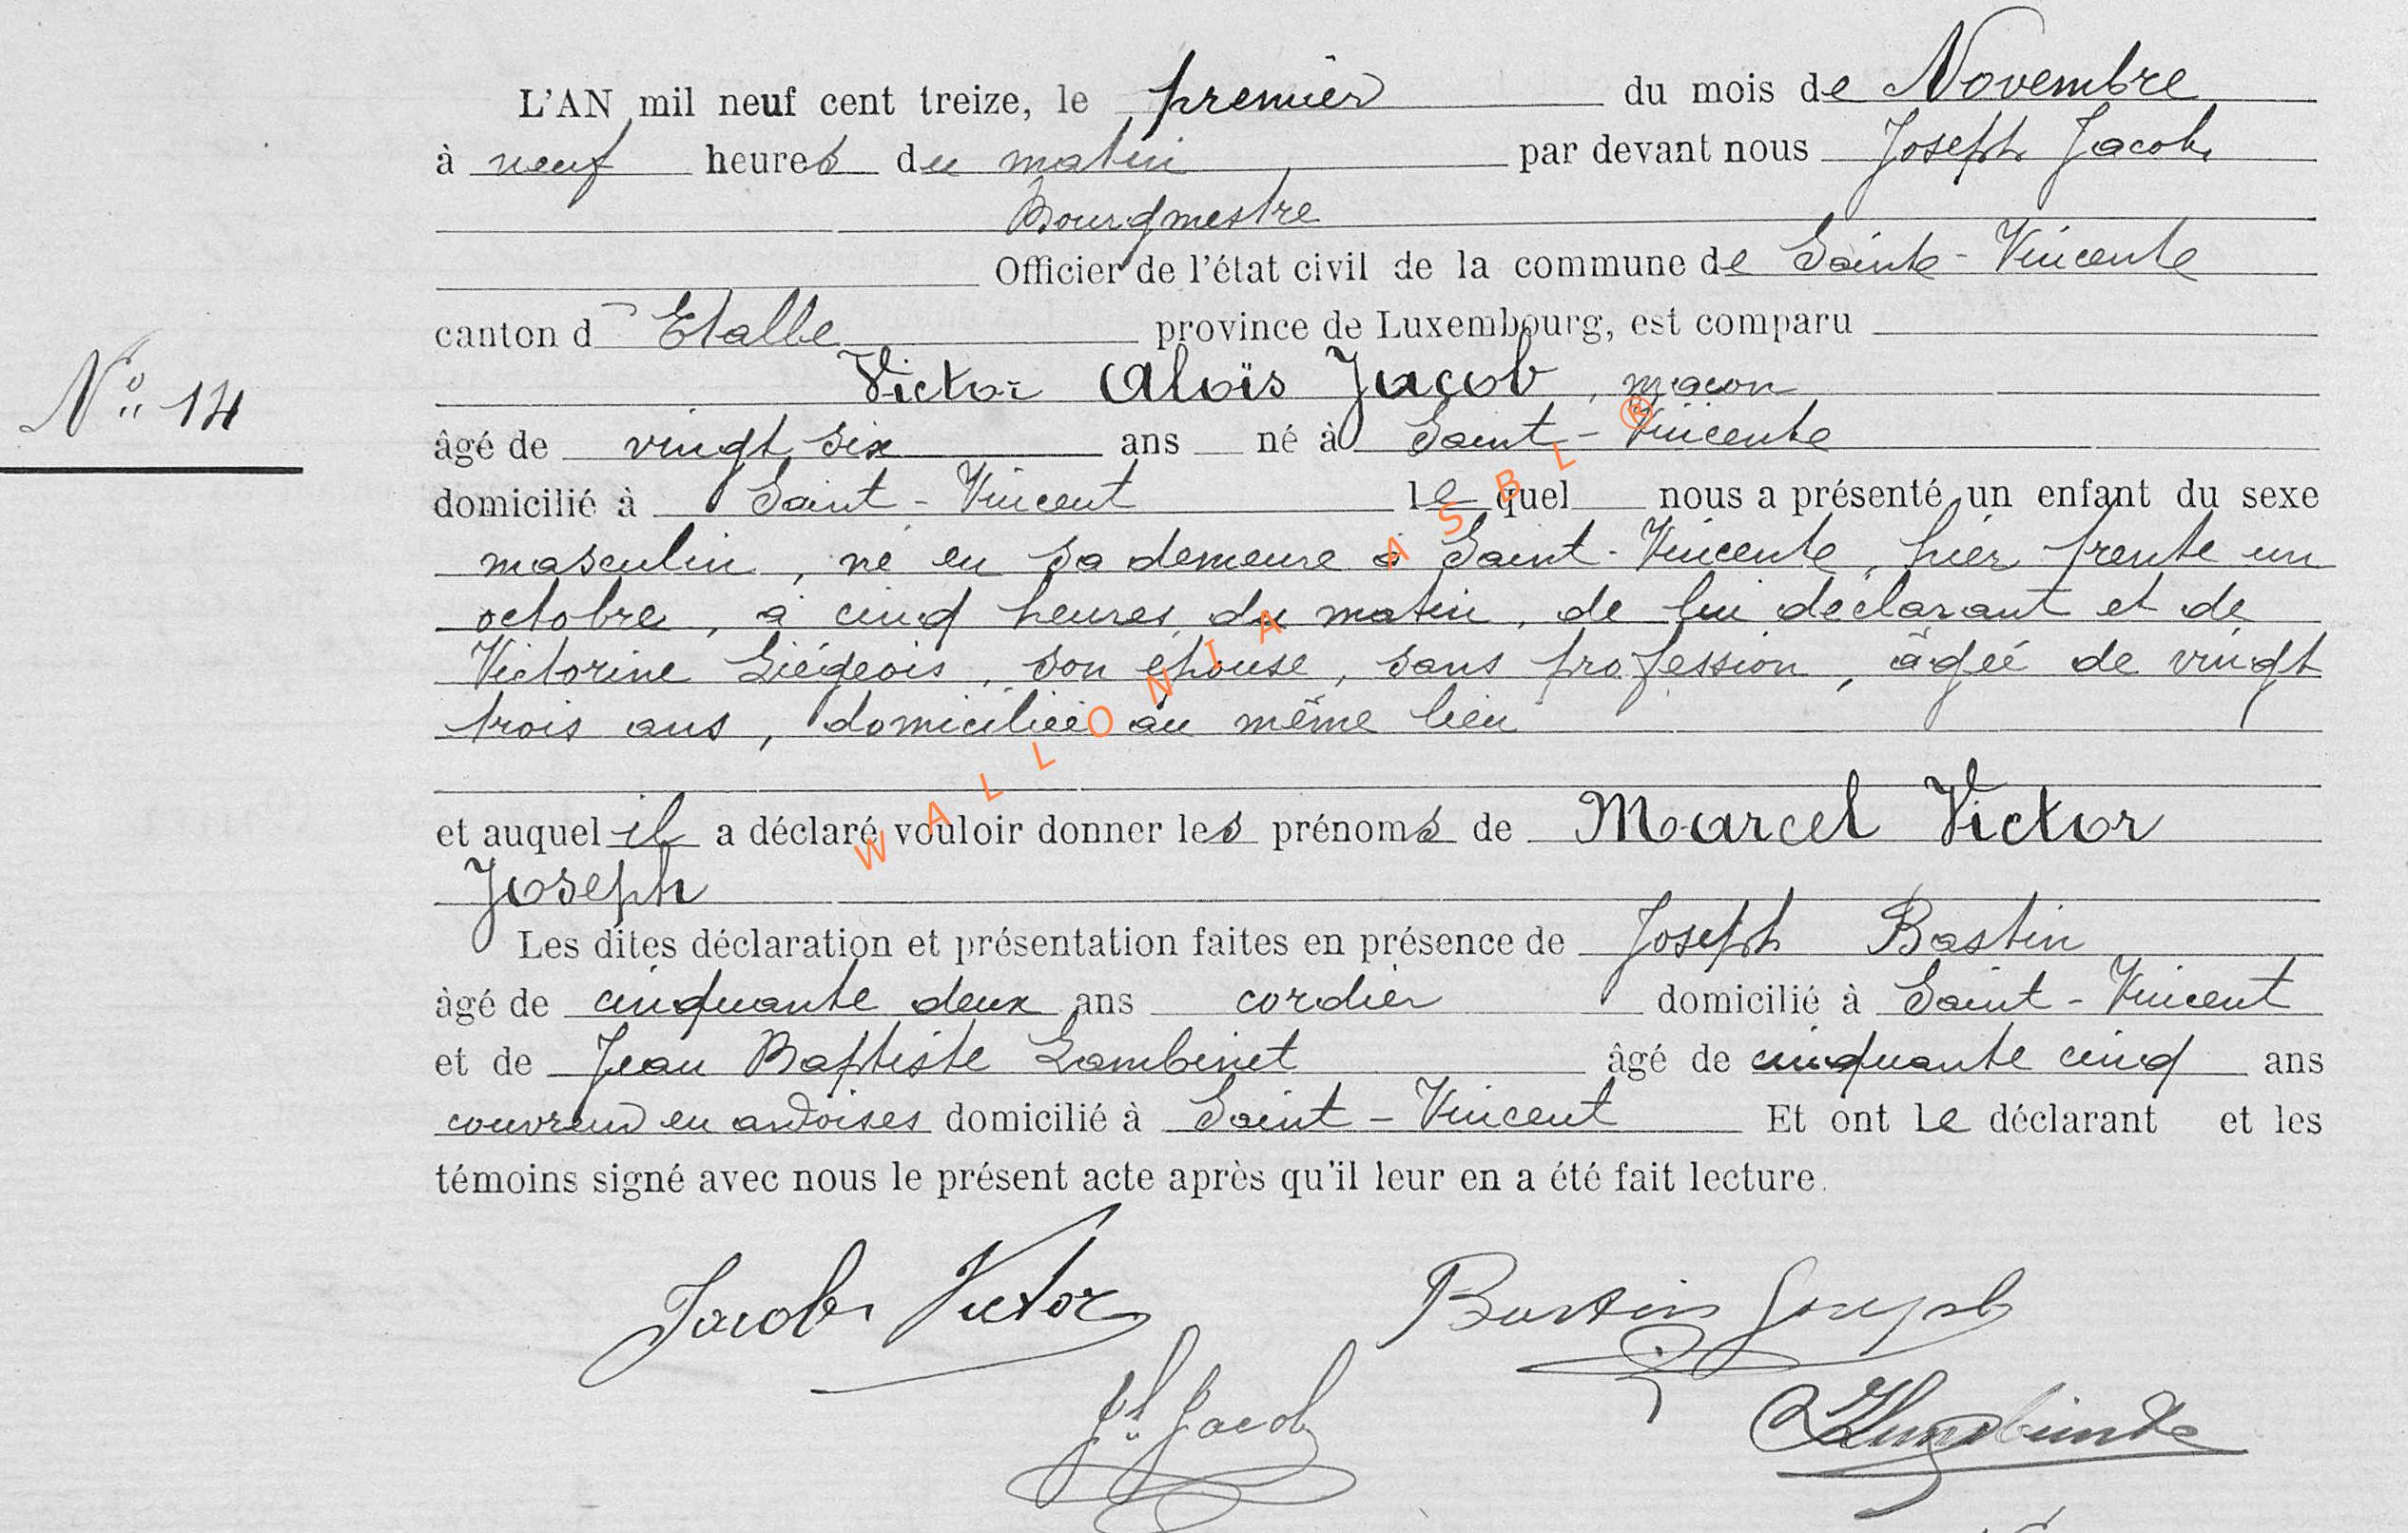 L'AN mil neuf cent treize, le premier du mois de Novembre
à neuf heures du matin par devant nous Joseph Jacob,
Bourgmestre
Officier de l'état civil de la commune de Sainte-Vincente
canton d'Etalle province de Luxembourg, est comparu
Victor Aloïs Jacob, maçon
N° 14
âgé de vingt six ans né à Saint-Vincente
domicilié à Saint-Vincent lequel nous a présenté un enfant du sexe
masculin, né en sa demeure à Saint-Vincente, hier trente un
octobre, à cinq heures du matin, de lui déclarant et de
Victorine Liégeois, son épouse, sans profession, âgée de vingt
trois ans, domiciliée au même lieu
et auquel il a déclaré vouloir donner les prénoms de Marcel Victor
Joseph
Les dites déclaration et présentation faites en présence de Joseph Bastin
âgé de cinquante deux ans cordier domicilié à Saint-Vincent
et de Jean Baptiste Lambinet âgé de cinquante cinq ans
couvreur en ardoises domicilié à Saint-Vincent Et ont le déclarant et les
témoins signé avec nous le présent acte après qu'il leur en a été fait lecture.
Jacob Victor Bastin Joseph
Jh Jacob
WALLONIA ASBL ®